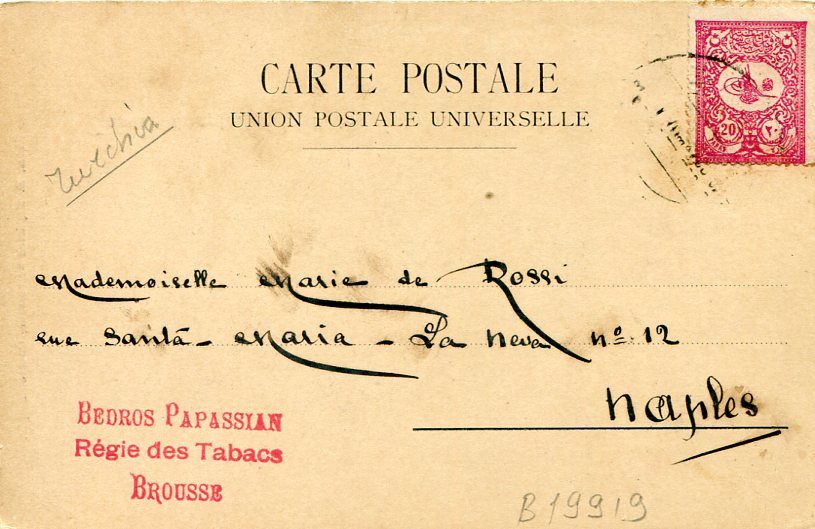 CARTE POSTALE
UNION POSTALE UNIVERSELLE
Turchia
20 ٢٠
Mademoiselle Marie de Rossi
rue Santa - Maria - La Neva nº 12
Naples
BEDROS PAPASSIAN
Régie des Tabacs
BROUSSE
B19919